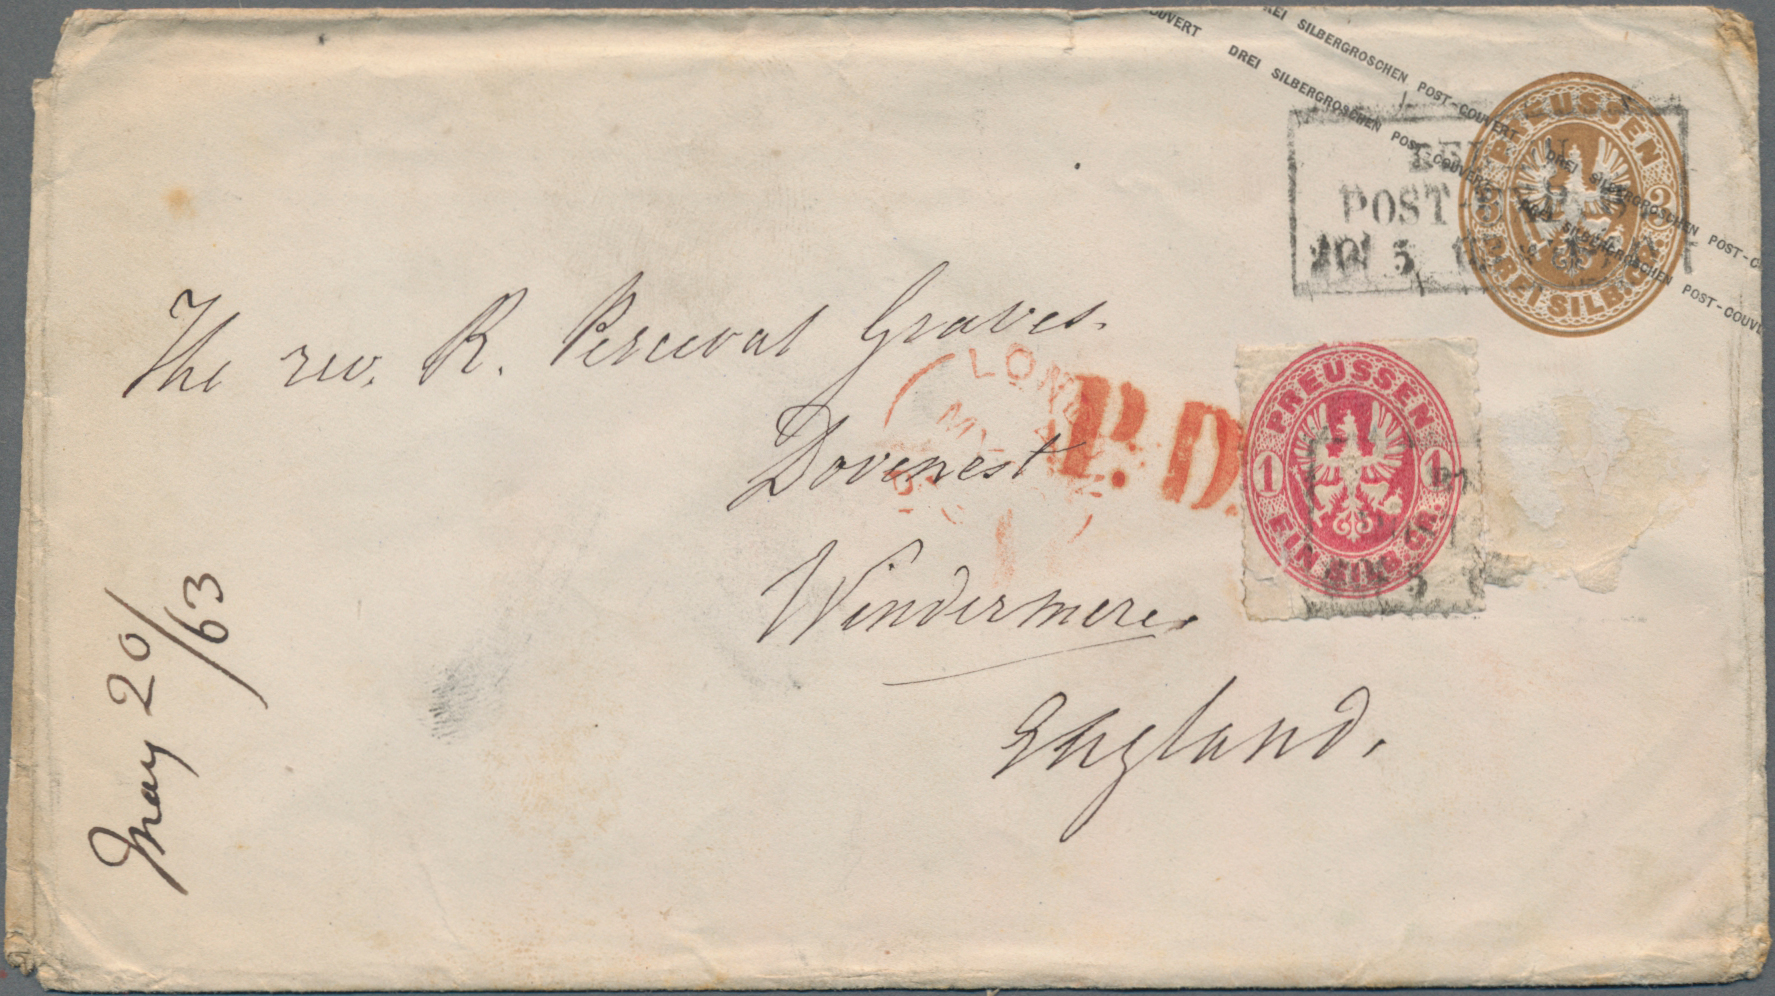 COUVERT DREI SILBERGROSCHEN POST-COUVERT DREI SILBERGROSCHEN POST-COUVE
DREI SILBERGROSCHEN POST-COUVERT DREI SILBERGROSCHEN POST-C
PREUSSEN
3 3
DREI SILB. GR.
POST
20 5
The rev. R. Perceval Graves.
Dovenest
Windermere.
England.
LON
MY
P.D.
PREUSSEN
1 1
EIN SILB. GR.
5
May 20/63